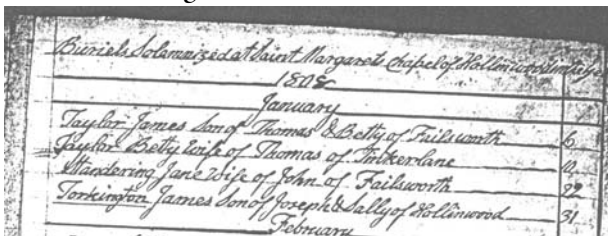 Burials Solemnized at Saint Margarets Chapel of Hollinwood in the
1808
January
Taylor James Son of Thomas & Betty of Failsworth 6
Taylor Betty Wife of Thomas of Tinkerlane 10
Standering Jane Wife of John of Failsworth 29
Torkington James Son of Joseph & Sally of Hollinwood 31
February